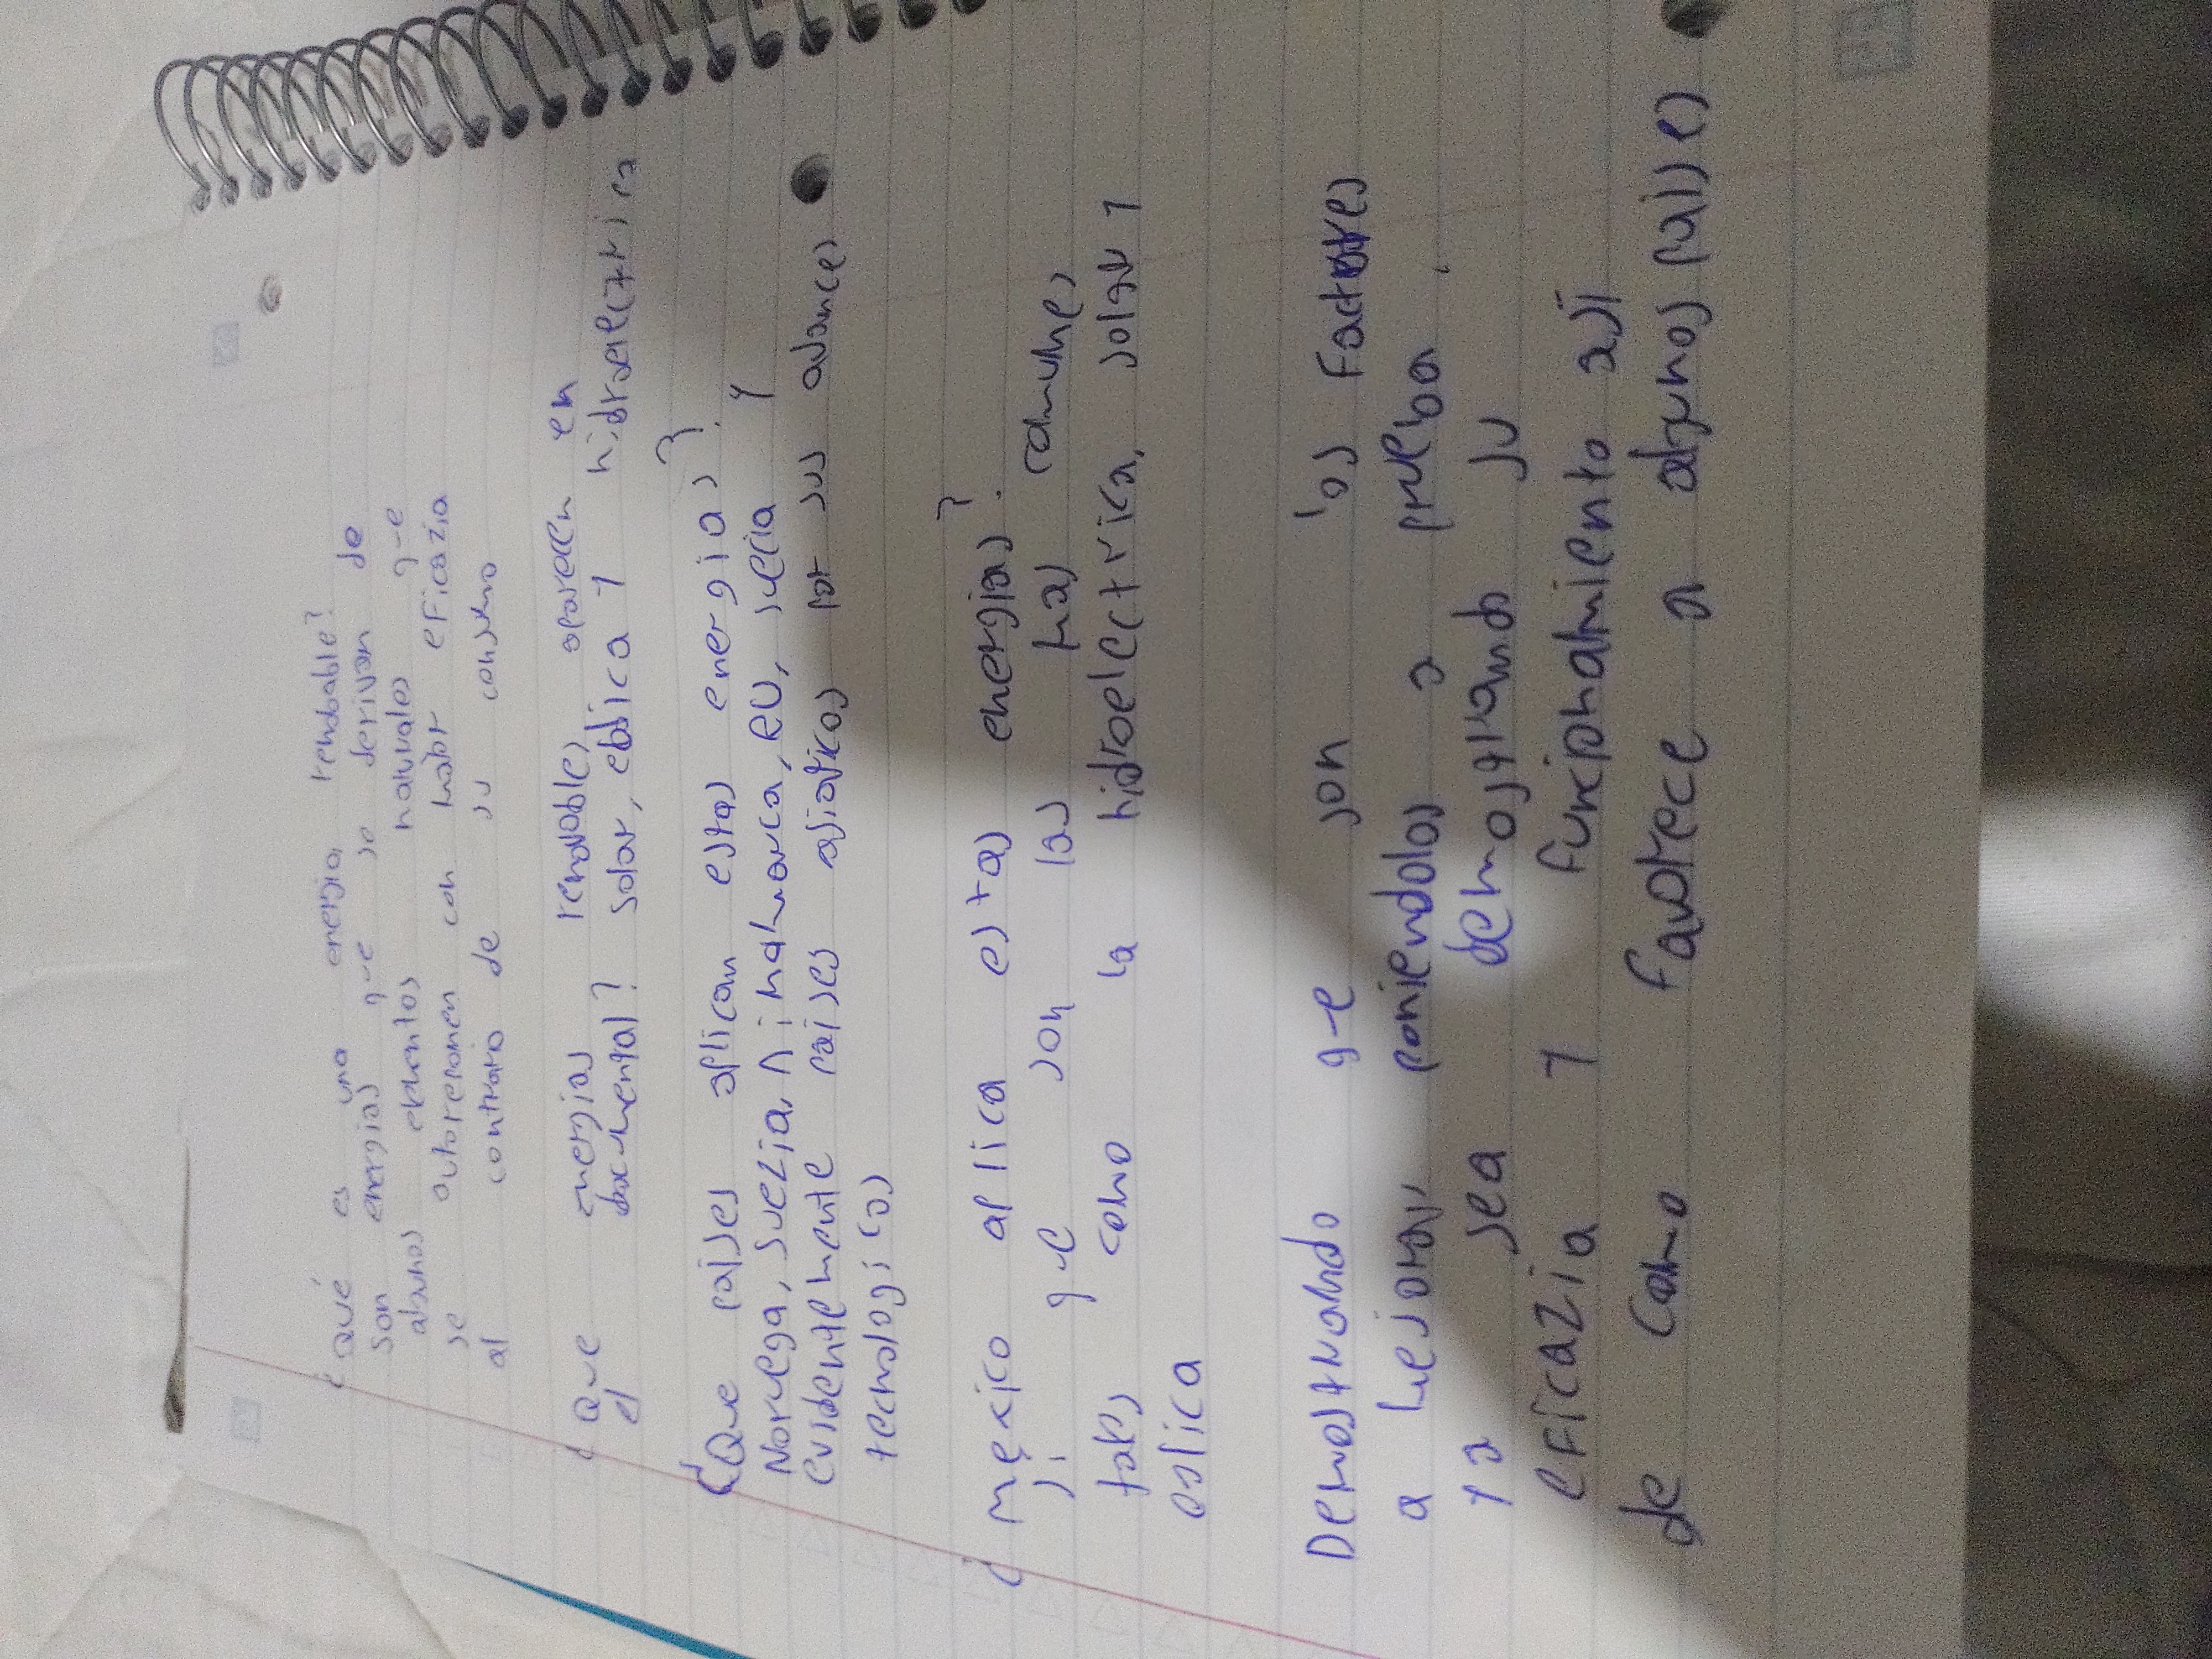 ¿Qué es una energia rendable?
son energias que se derivan de
algunos elementos naturales q-e
se autoreponen con mator eficazia
al contrario de su consumo
¿Que energias renovables aparecen en
el documental? solar, eolica y hidraelectrica
¿Que paises aplican estas energias?
Noruega, Suezia, Dinamarca, EU, suecia y
evidentemente paises asiaticos por sus avances
tecnologicos
¿Mexico aplica estas energias?
si que son las mas comunes
tales como la hidroelectrica, solar y
eolica
Demostrando q-e son los Factores
a mejorar, poniendolos a prueba.
ya sea demostrando su
eficazia y funcionamiento asi
de como favorece a algunos paises